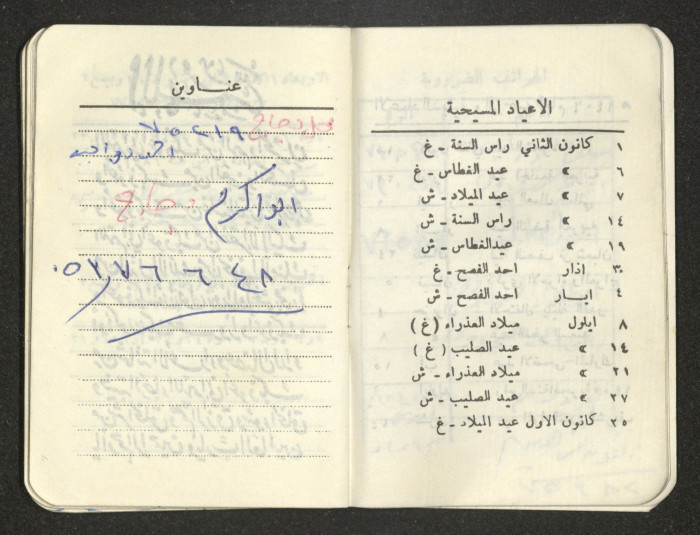 الاعياد المسيحية
١ كانون الثاني راس السنة - غ
٦ » عيد الغطاس - غ
٧ » عيد الميلاد - ش
١٤ » راس السنة - ش
١٩ » عيد الغطاس - ش
٣٠ اذار احد الفصح - غ
٤ ايار احد الفصح - ش
٨ ايلول ميلاد العذراء (غ)
١٤ » عيد الصليب (غ)
٢١ » ميلاد العذراء - ش
٢٧ » عيد الصليب - ش
٢٥ كانون الاول عيد الميلاد - غ
عناوين
٧٥٢١٩
احمد
ابو اكرم
٠٥٢٧٦٦٤٨